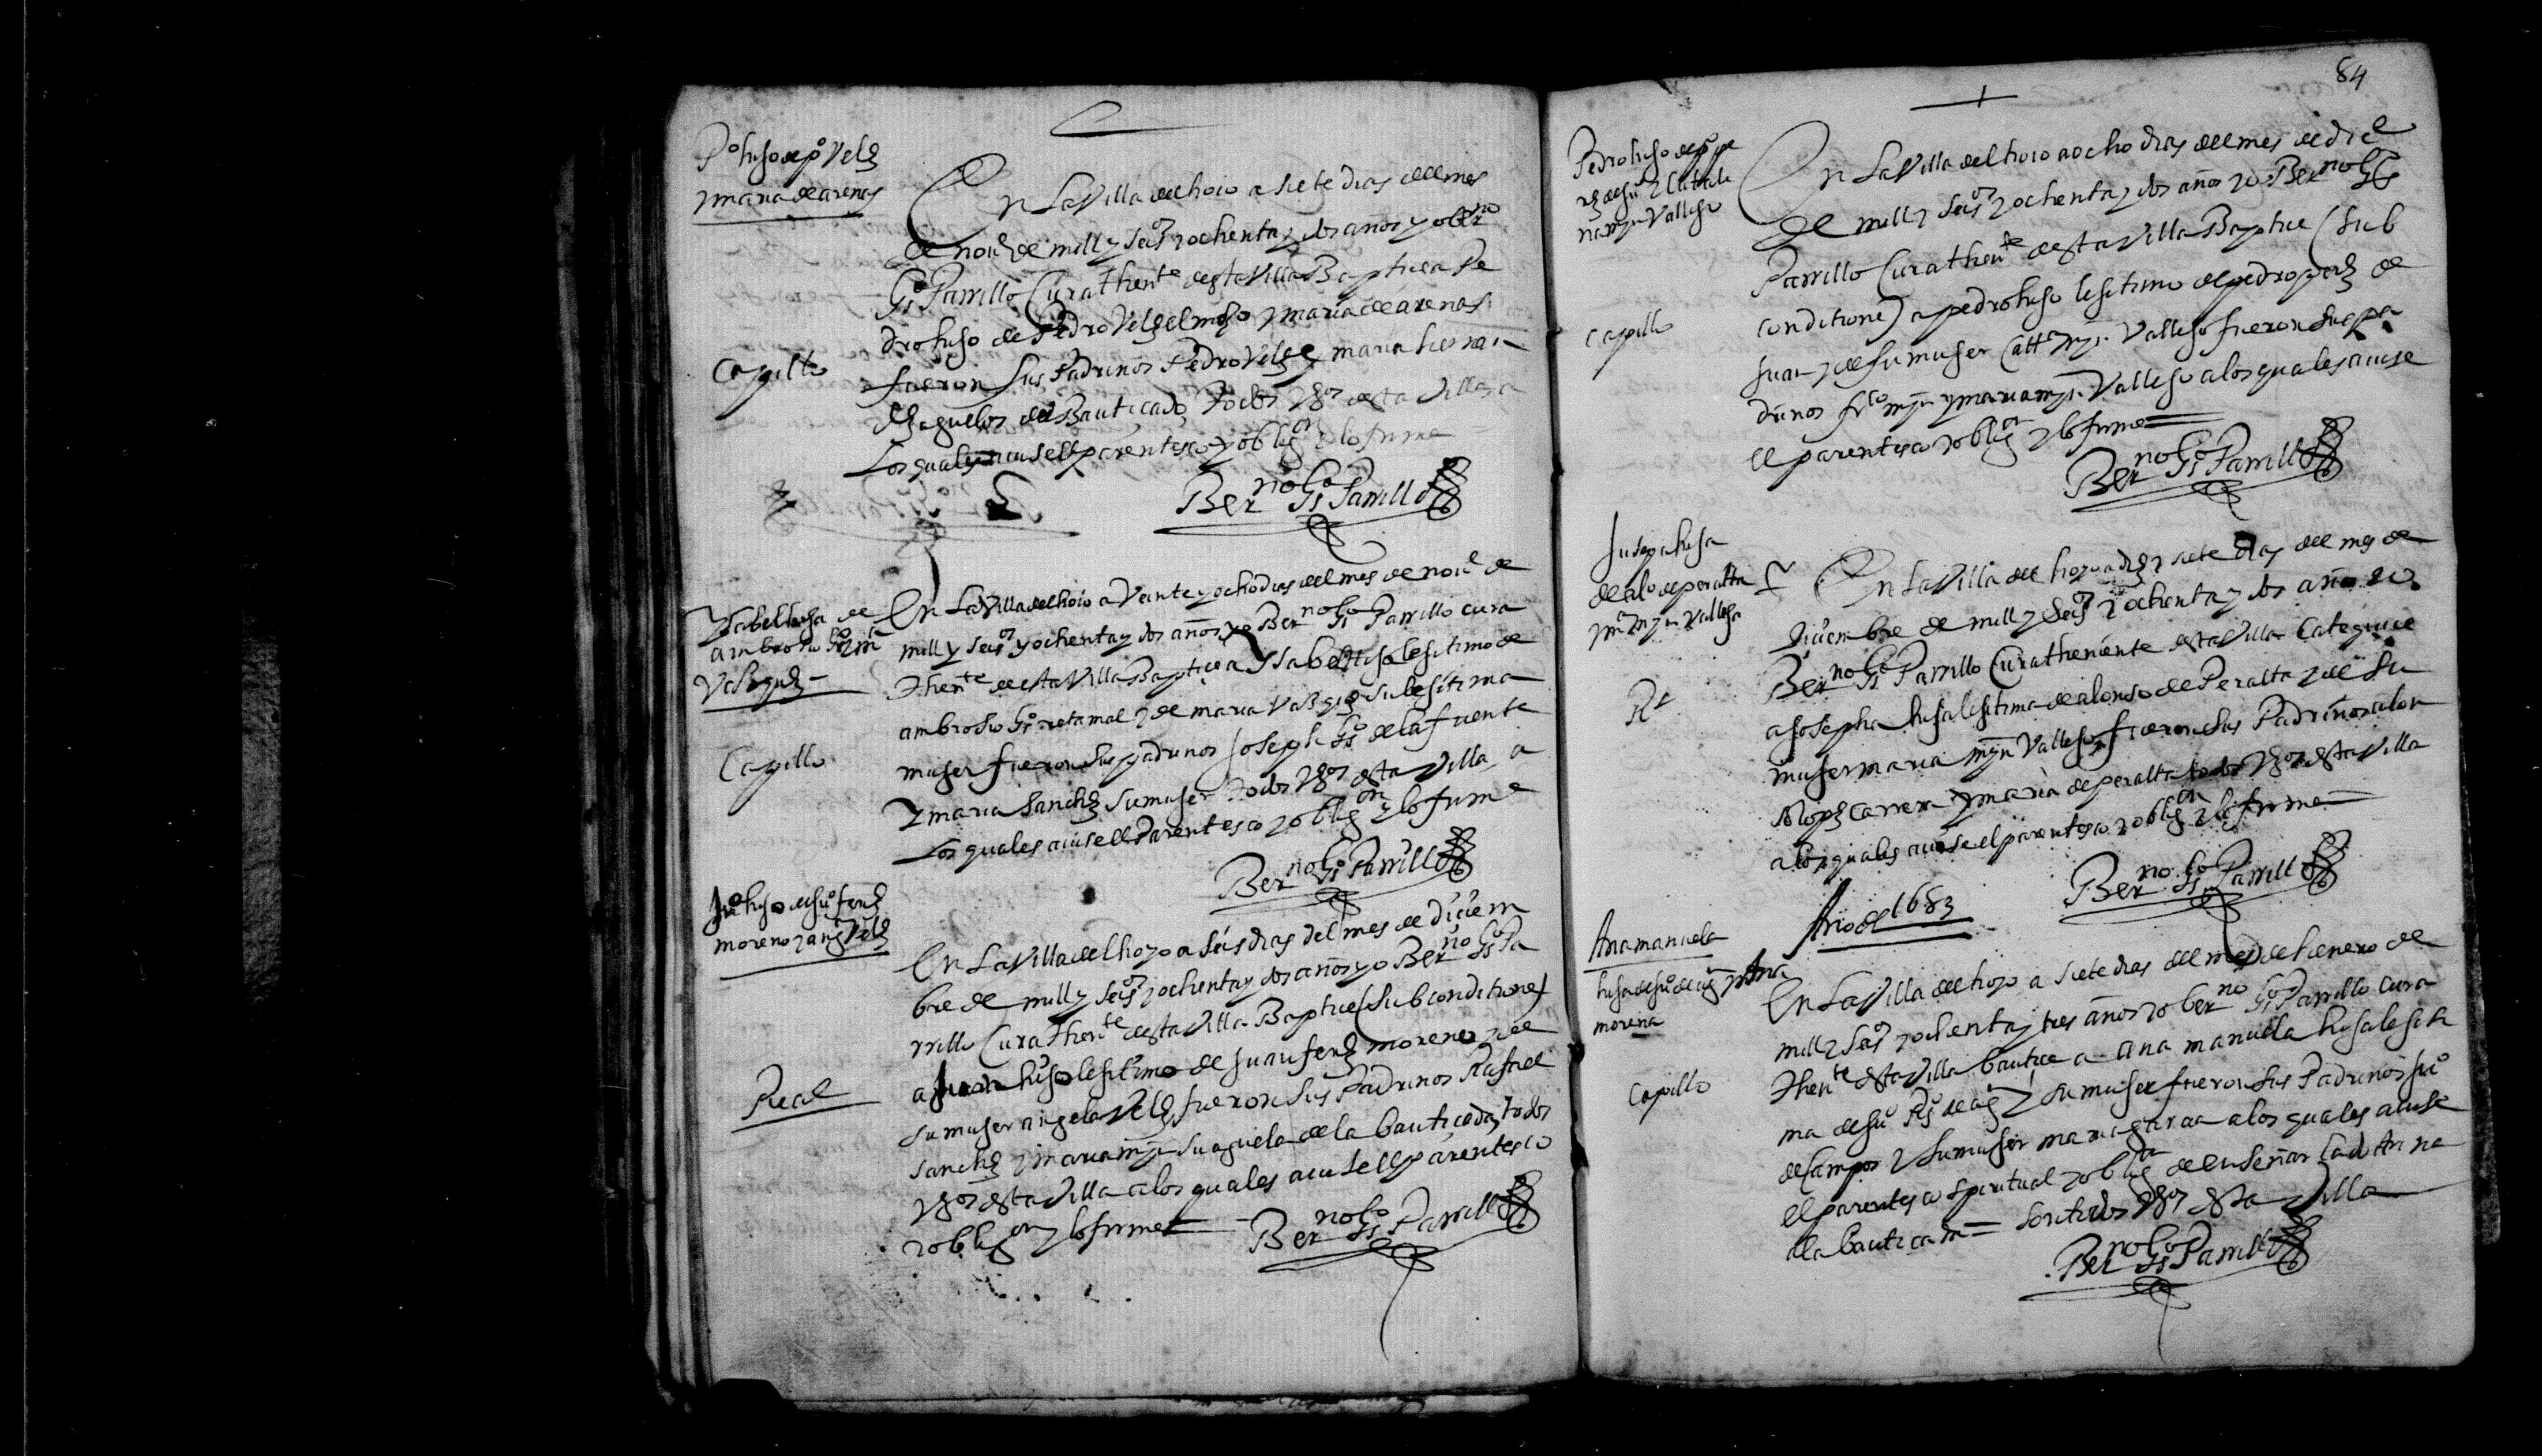 Po hijo de po Velz
y maria de arenas
En La Villa del hoio a siete dias del mes
de nouе de mill y seisos y ochenta y dos anos yo berno
Go Parrillo Cura thente desta Villa Baptice a Pe
dro hijo de Pedro Velz el moço y maria de arenas
fueron sus Padrinos Pedro Velz y maria hernan
dz aguelos del Bauticado todos vos desta Villa a
Los quales auise el parentesco y obligon y lo firme
Capillo
Berno Go Parrillo
Ysabel hija de
ambrosio Go y ma
Vasquz
En La Villa del hoio a Veinte y ocho dias del mes de noue de
mill y seisos y ochenta y dos años yo Berno Go Parrillo cura
Thente de esta Villa Baptice a Ysabel hija lesitima de
ambrosio Go retamal y de maria Vasquz su lesitima
muger fueron sus padrinos Joseph Go de la fuente
Y maria Sanchz su muger todos vos desta Villa a
Los quales auise el Parentesco y obligon y lo firme
Capillo
Berno Go Parrillo
Juo hijo de juo ferz
moreno y ang Velz
En La Villa del hoyo a seis dias del mes de Diciem
bre de mill y seisos y ochenta y dos años yo Berno Go Pa
rrillo Cura Thente desta Villa Baptice (sub conditione)
a Juan hijo lesitimo de juan ferz moreno y de
su muger angela Velz fueron sus Padrinos Rafael
Sanchz y maria mrn su aguela de la bauticada todos
vos desta Villa a los quales auise el parentesco
y obligon y lo firme
Real
Berno Go Parrillo
84
Pedro hijo de po pe
rz de juo y Catali
na mrn Vallejo
En La Villa del hoio a ocho dias del mes de dice
De mill y seisos y ochenta y dos años yo Berno Go
Parrillo Cura thente desta Villa Baptice (sub
conditione) a pedro hijo lesitimo de pedro perz de
juan y de su muger Catta mrn Vallejo fueron sus pa
drinos frco mrn y maria mrn Vallejo a los quales auise
el parentesco y obligon y lo firme
Capillo
Berno Go Parrillo
Jusepa hija
de alo de peralta
y ma mrn Valleja
En La Villa del hoyo a diez y siete dias del mes de
Diciembre de mill y seisos y ochenta y dos años yo
Berno Go Parrillo Cura theniente desta Villa Categuice
a Josepha hija lesitima de alonso de Peralta y de su
muger maria mrn Vallejo fueron sus Padrinos alon
so lopz Carrera y maria de peralta todos vos desta Villa
a los quales auise el parentesco y obligon y lo firme
Rl
Berno Go Parrillo
Año de 1683
Ana manuela
hija de juo y Ana
morena
En La Villa del hoyo a siete dias del mes de henero de
mill y seisos y ochenta y tres años yo berno Go Parrillo Cura
Thente desta Villa bautice a Ana manuela hija lesiti
ma de juo y su muger fueron sus Padrinos juo
de Campos y su muger maria garcia a los quales auise
el parentesco spiritual y obligon de enseñar
a la bauticada son todos vos desta Villa
Capillo
Berno Go Parrillo